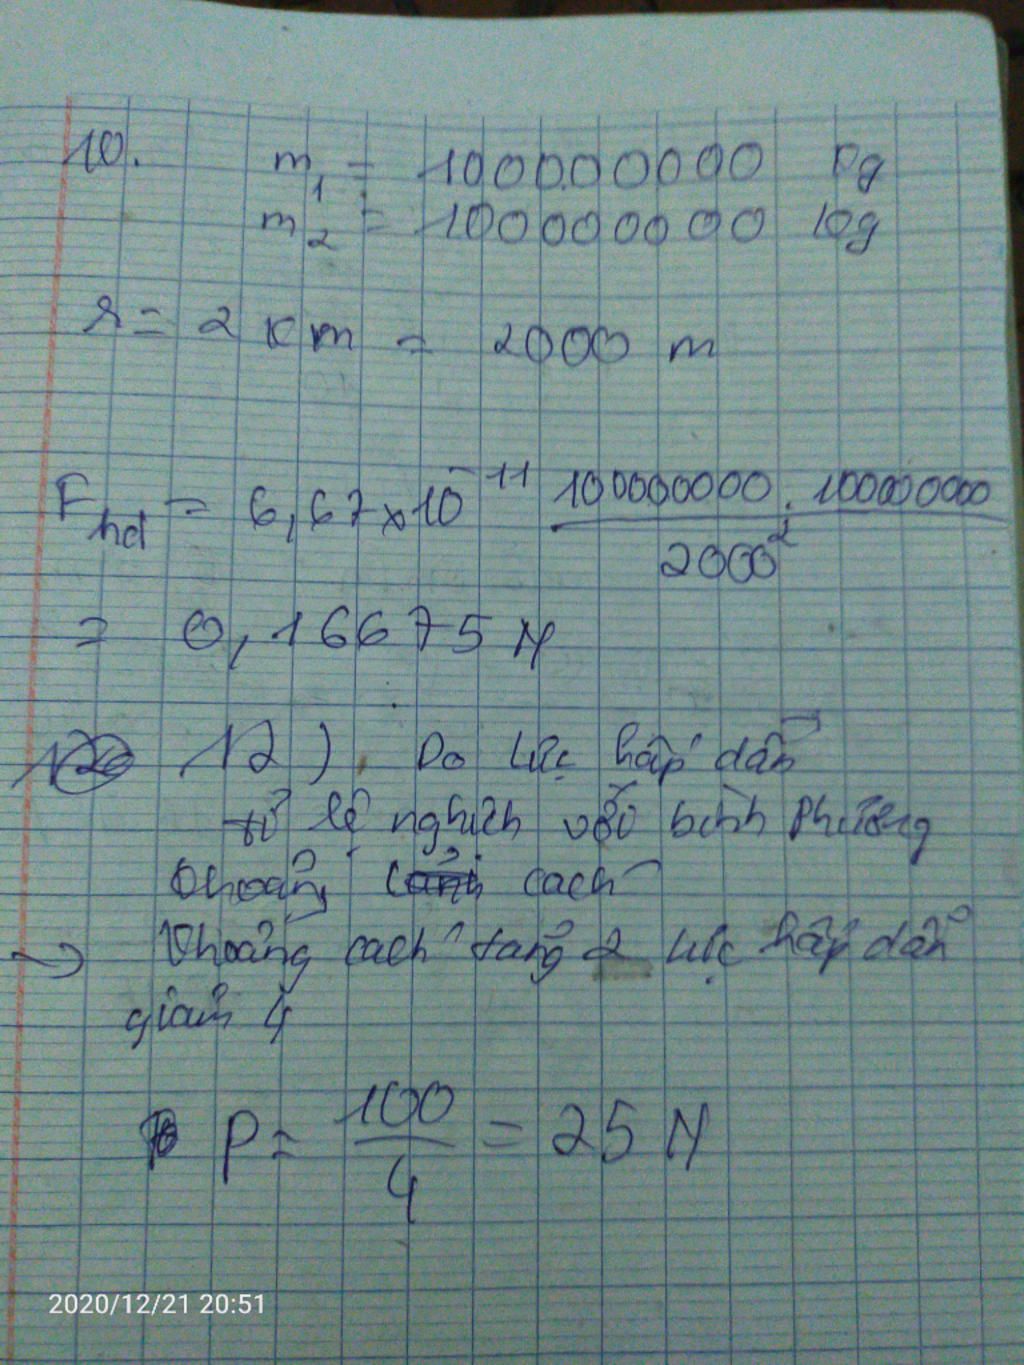 10. m1 = 100000000 kg
m2 = 100000000 kg
r = 2 km = 2000 m
Fhd = 6,67 x 10^-11 100000000 . 100000000 / 2000^2
= 0,16675 N
12) Do lực hấp dẫn
tỉ lệ nghịch với bình phương
khoảng cách
→ Khoảng cách tăng 2 lực hấp dẫn
giảm 4
P = 100/4 = 25 N
2020/12/21 20:51